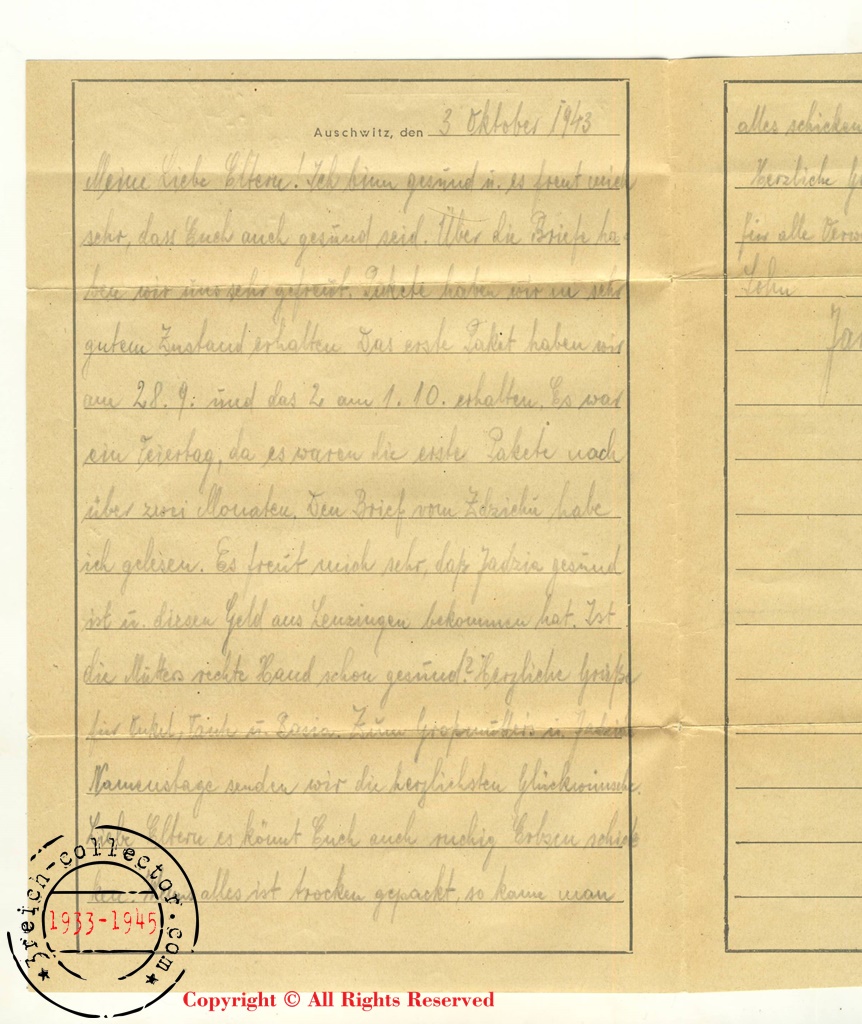 Auschwitz, den 3 Oktober 1943
Meine Liebe Eltern! Ich binn gesund u. es freut mich
sehr, dass Euch auch gesund seid. Über die Briefe ha-
ben wir uns sehr gefreut. Pakete haben wir in sehr
gutem Zustand erhalten. Das erste Paket haben wir
am 28. 9. und das 2 am 1. 10. erhalten. Es war
ein Feiertag, da es waren die erste Pakete nach
über zwei Monaten. Den Brief vom Zdzichu habe
ich gelesen. Es freut mich sehr, daß Jadzia gesund
ist u. diesen Geld aus Lenzingen bekommen hat. Ist
die Mutters rechte Hand schon gesund? Herzliche Grüße
für Onkel, u. Basia. Zum Großmutters u.
Namenstage senden wir die herzlichsten Glückwünsche.
Liebe Eltern es könnt Euch auch ruhig Erbsen schik-
ken. alles ist trocken gepackt, so kann man
alles schicken
Herzliche
für alle
Sohn
3reich-collector.com
1933-1945
Copyright © All Rights Reserved